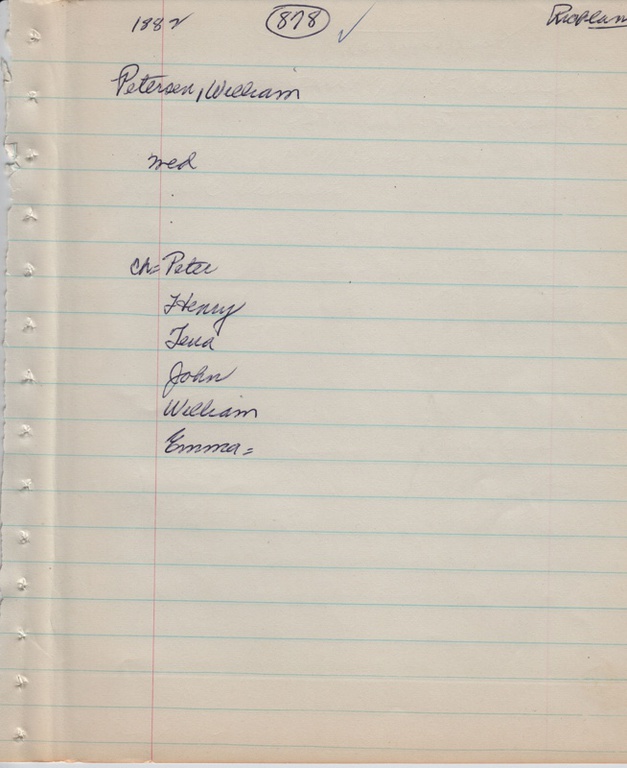 1882 878 ✓
Petersen, William
med
ch= Peter
Henry
Tena
John
William
Emma=